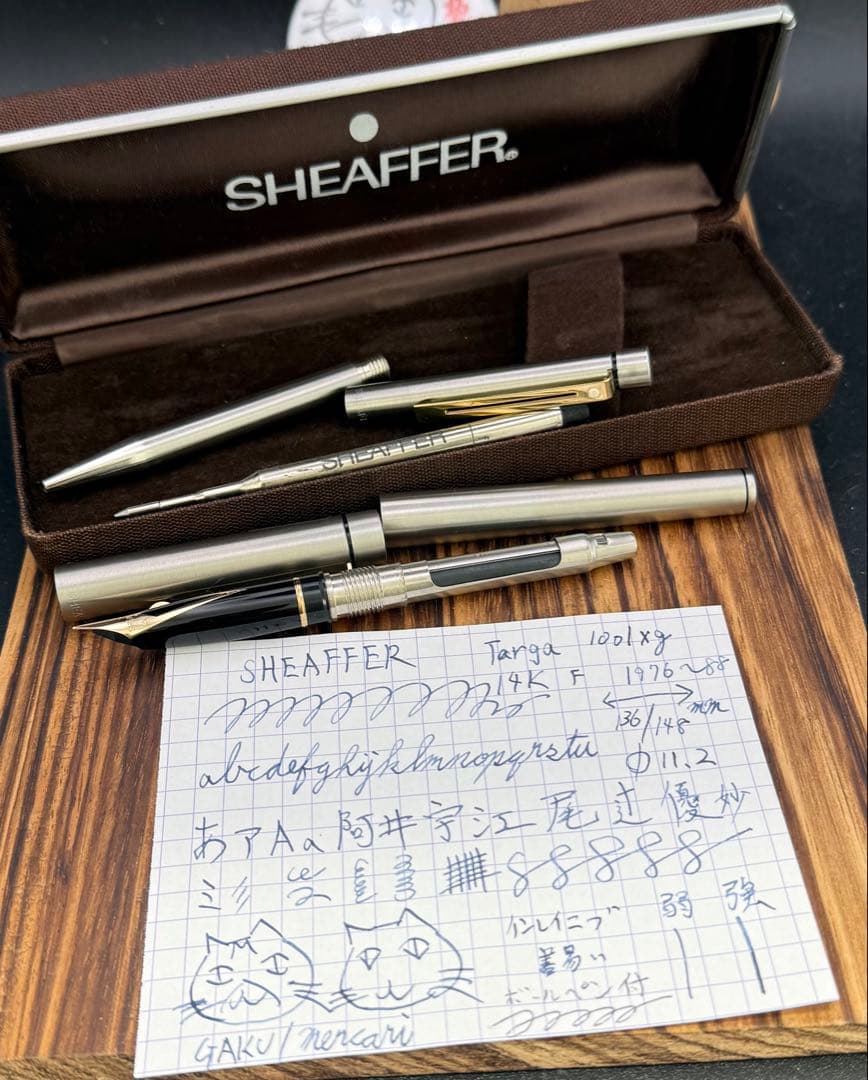 SHEAFFER®
SHEAFFER
SHEAFFER Targa 1001xg
14K F 1976~88
136/148mm
abcdefghijklmnopqrstu φ11.2
あアAa阿井宇江尾辻優妙
インレイニブ 弱 強
ボールペン付
GAKU/mercari